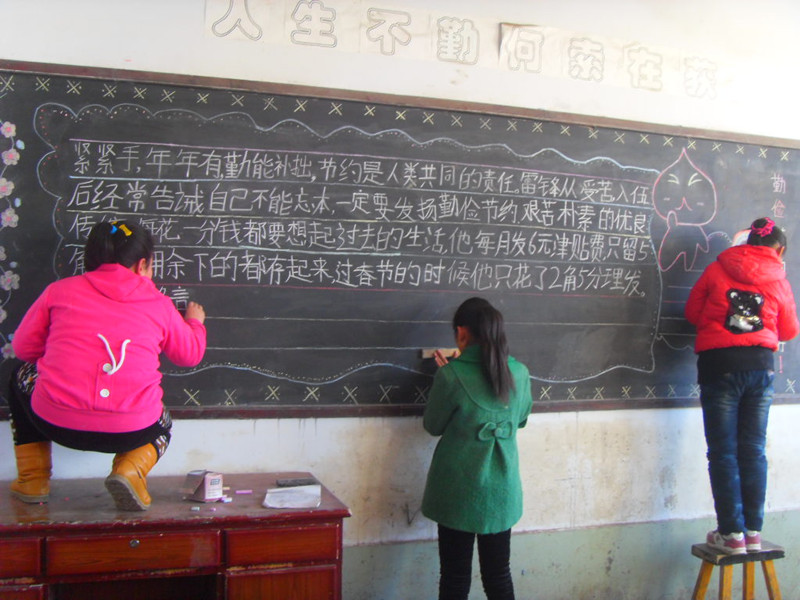 人生不勤何索在获
紧紧手,年年有,勤能补拙,节约是人类共同的责任,雷锋从受苦入伍
后经常告诫自己不能忘本,一定要发扬勤俭节约,艰苦朴素的优良
每花一分钱都要想起过去的生活,他每月发6元津贴费只留5
余下的都存起来,过春节的时候他只花了2角5分理发,
言
勤
俭